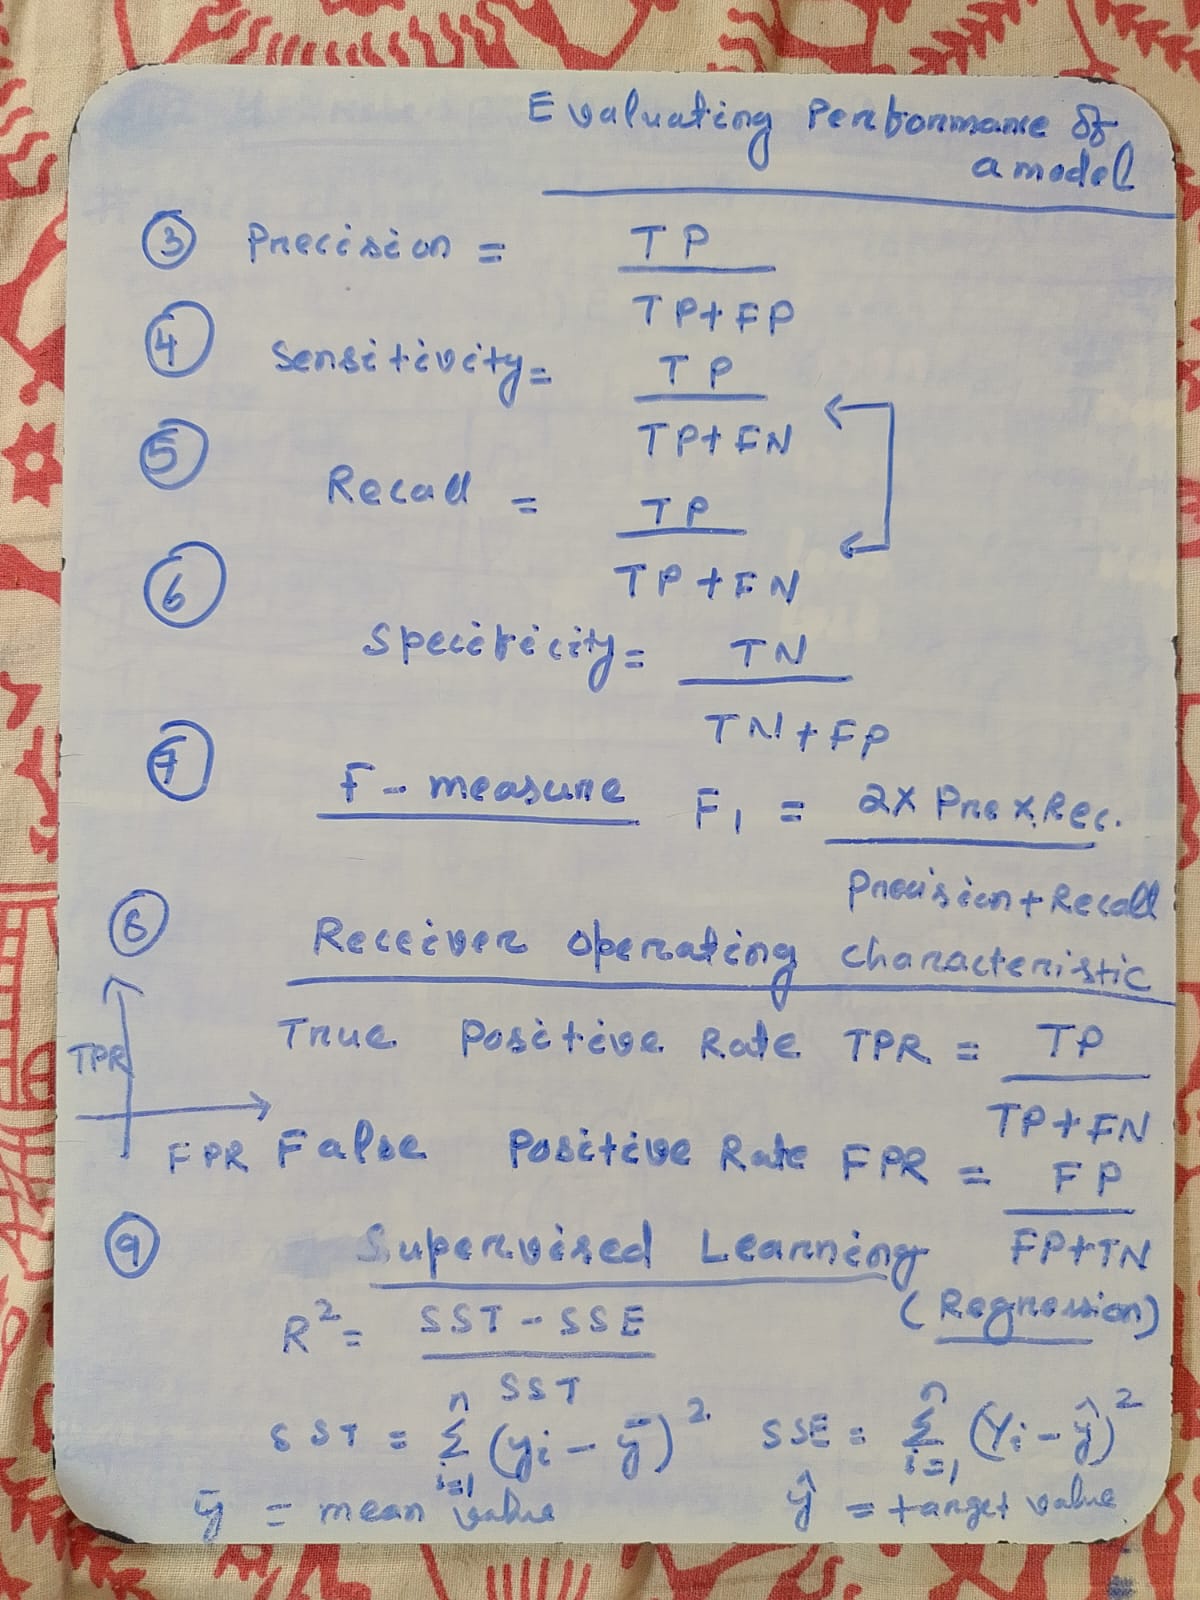 Evaluating Performance of
a model
③ Precision = TP
TP+FP
④ Sensitivity = TP
TP+FN
⑤ Recall = TP
TP+FN
⑥ Specificity = TN
TN+FP
⑦ F-measure F₁ = 2X Pre X Rec.
Precision + Recall
⑧ Receiver operating characteristic
True Positive Rate TPR = TP
TP+FN
TPR
FPR
False Positive Rate FPR = FP
FP+TN
⑨ Supervised Learning
(Regression)
R² = SST - SSE
SST
SST = Σ (yi - ȳ)² SSE = Σ (Yi - ŷ)²
n i=1 n i=1
ȳ = mean value ŷ = target value